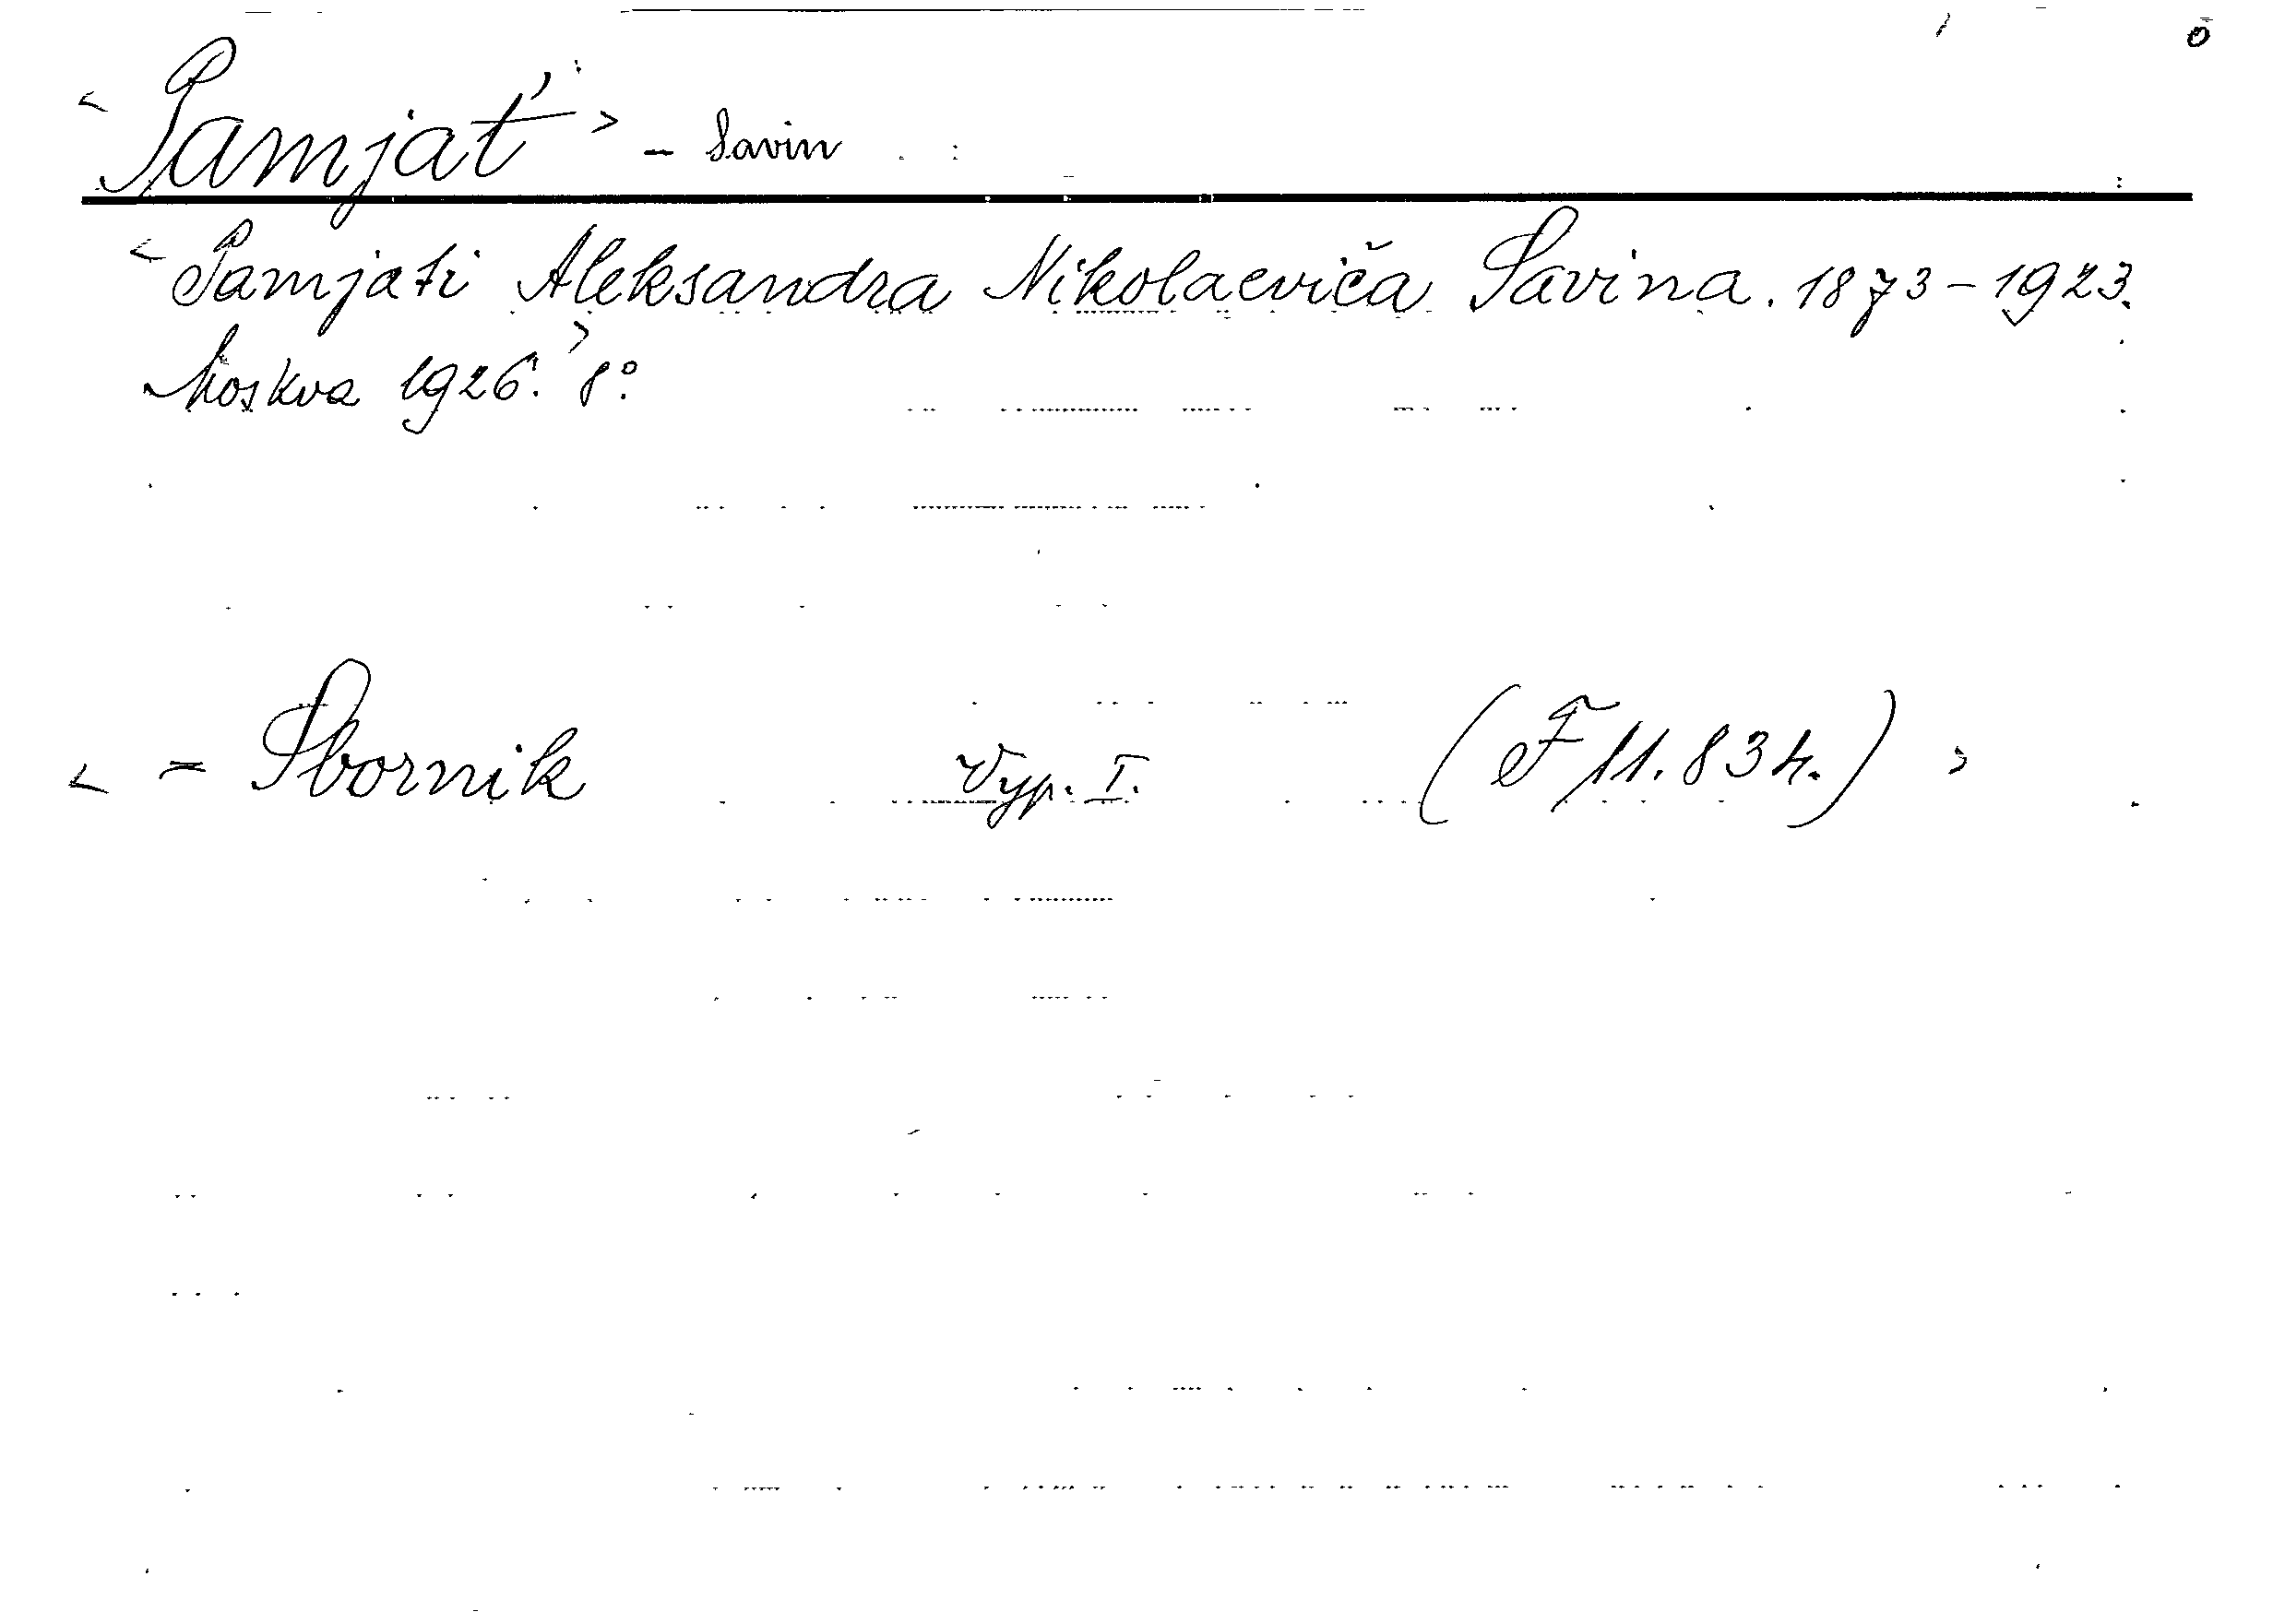 < Pamjat' > - Savin
< Pamjati Aleksandra Nikolaeviča Savina. 1873-1923.
Moskva 1926. > 8°.
< = Sbornik Vyp. I. (F 11.834.) >